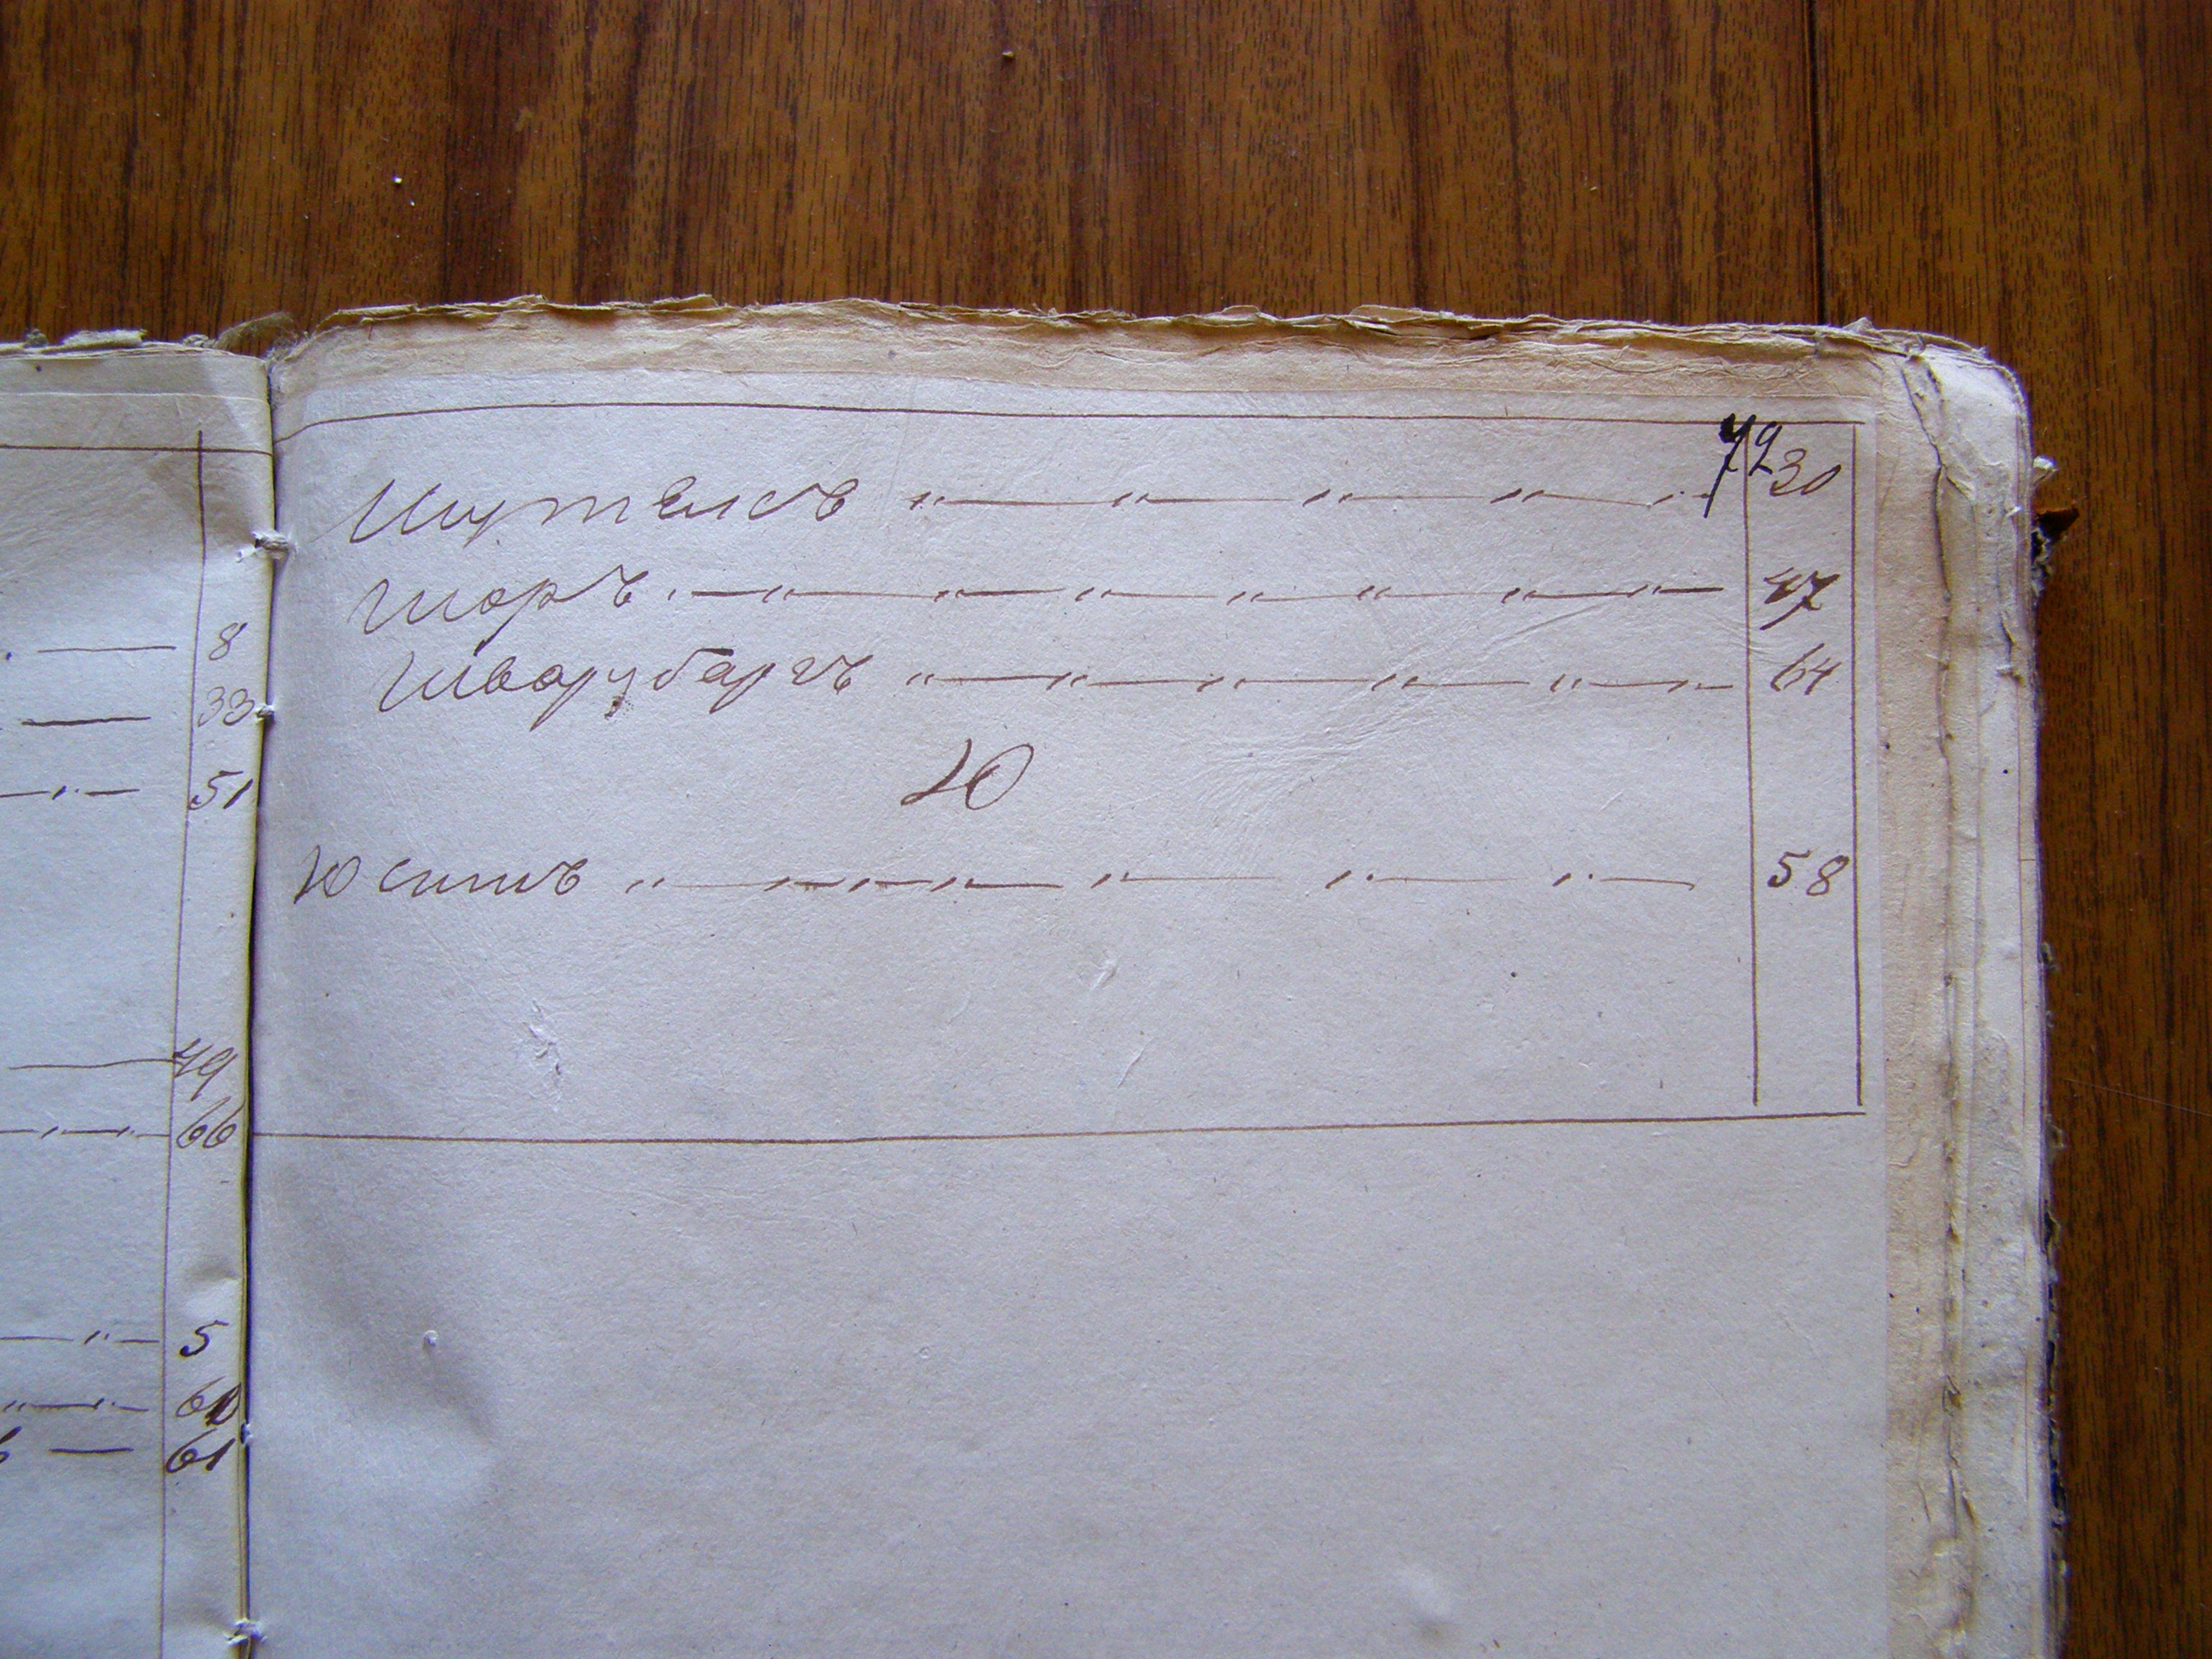 8
33
51
49
66
5
60
61
72
Шутелсъ 30
Шоръ 47
Шварцбаргъ 64
Ю
Юсимъ 58